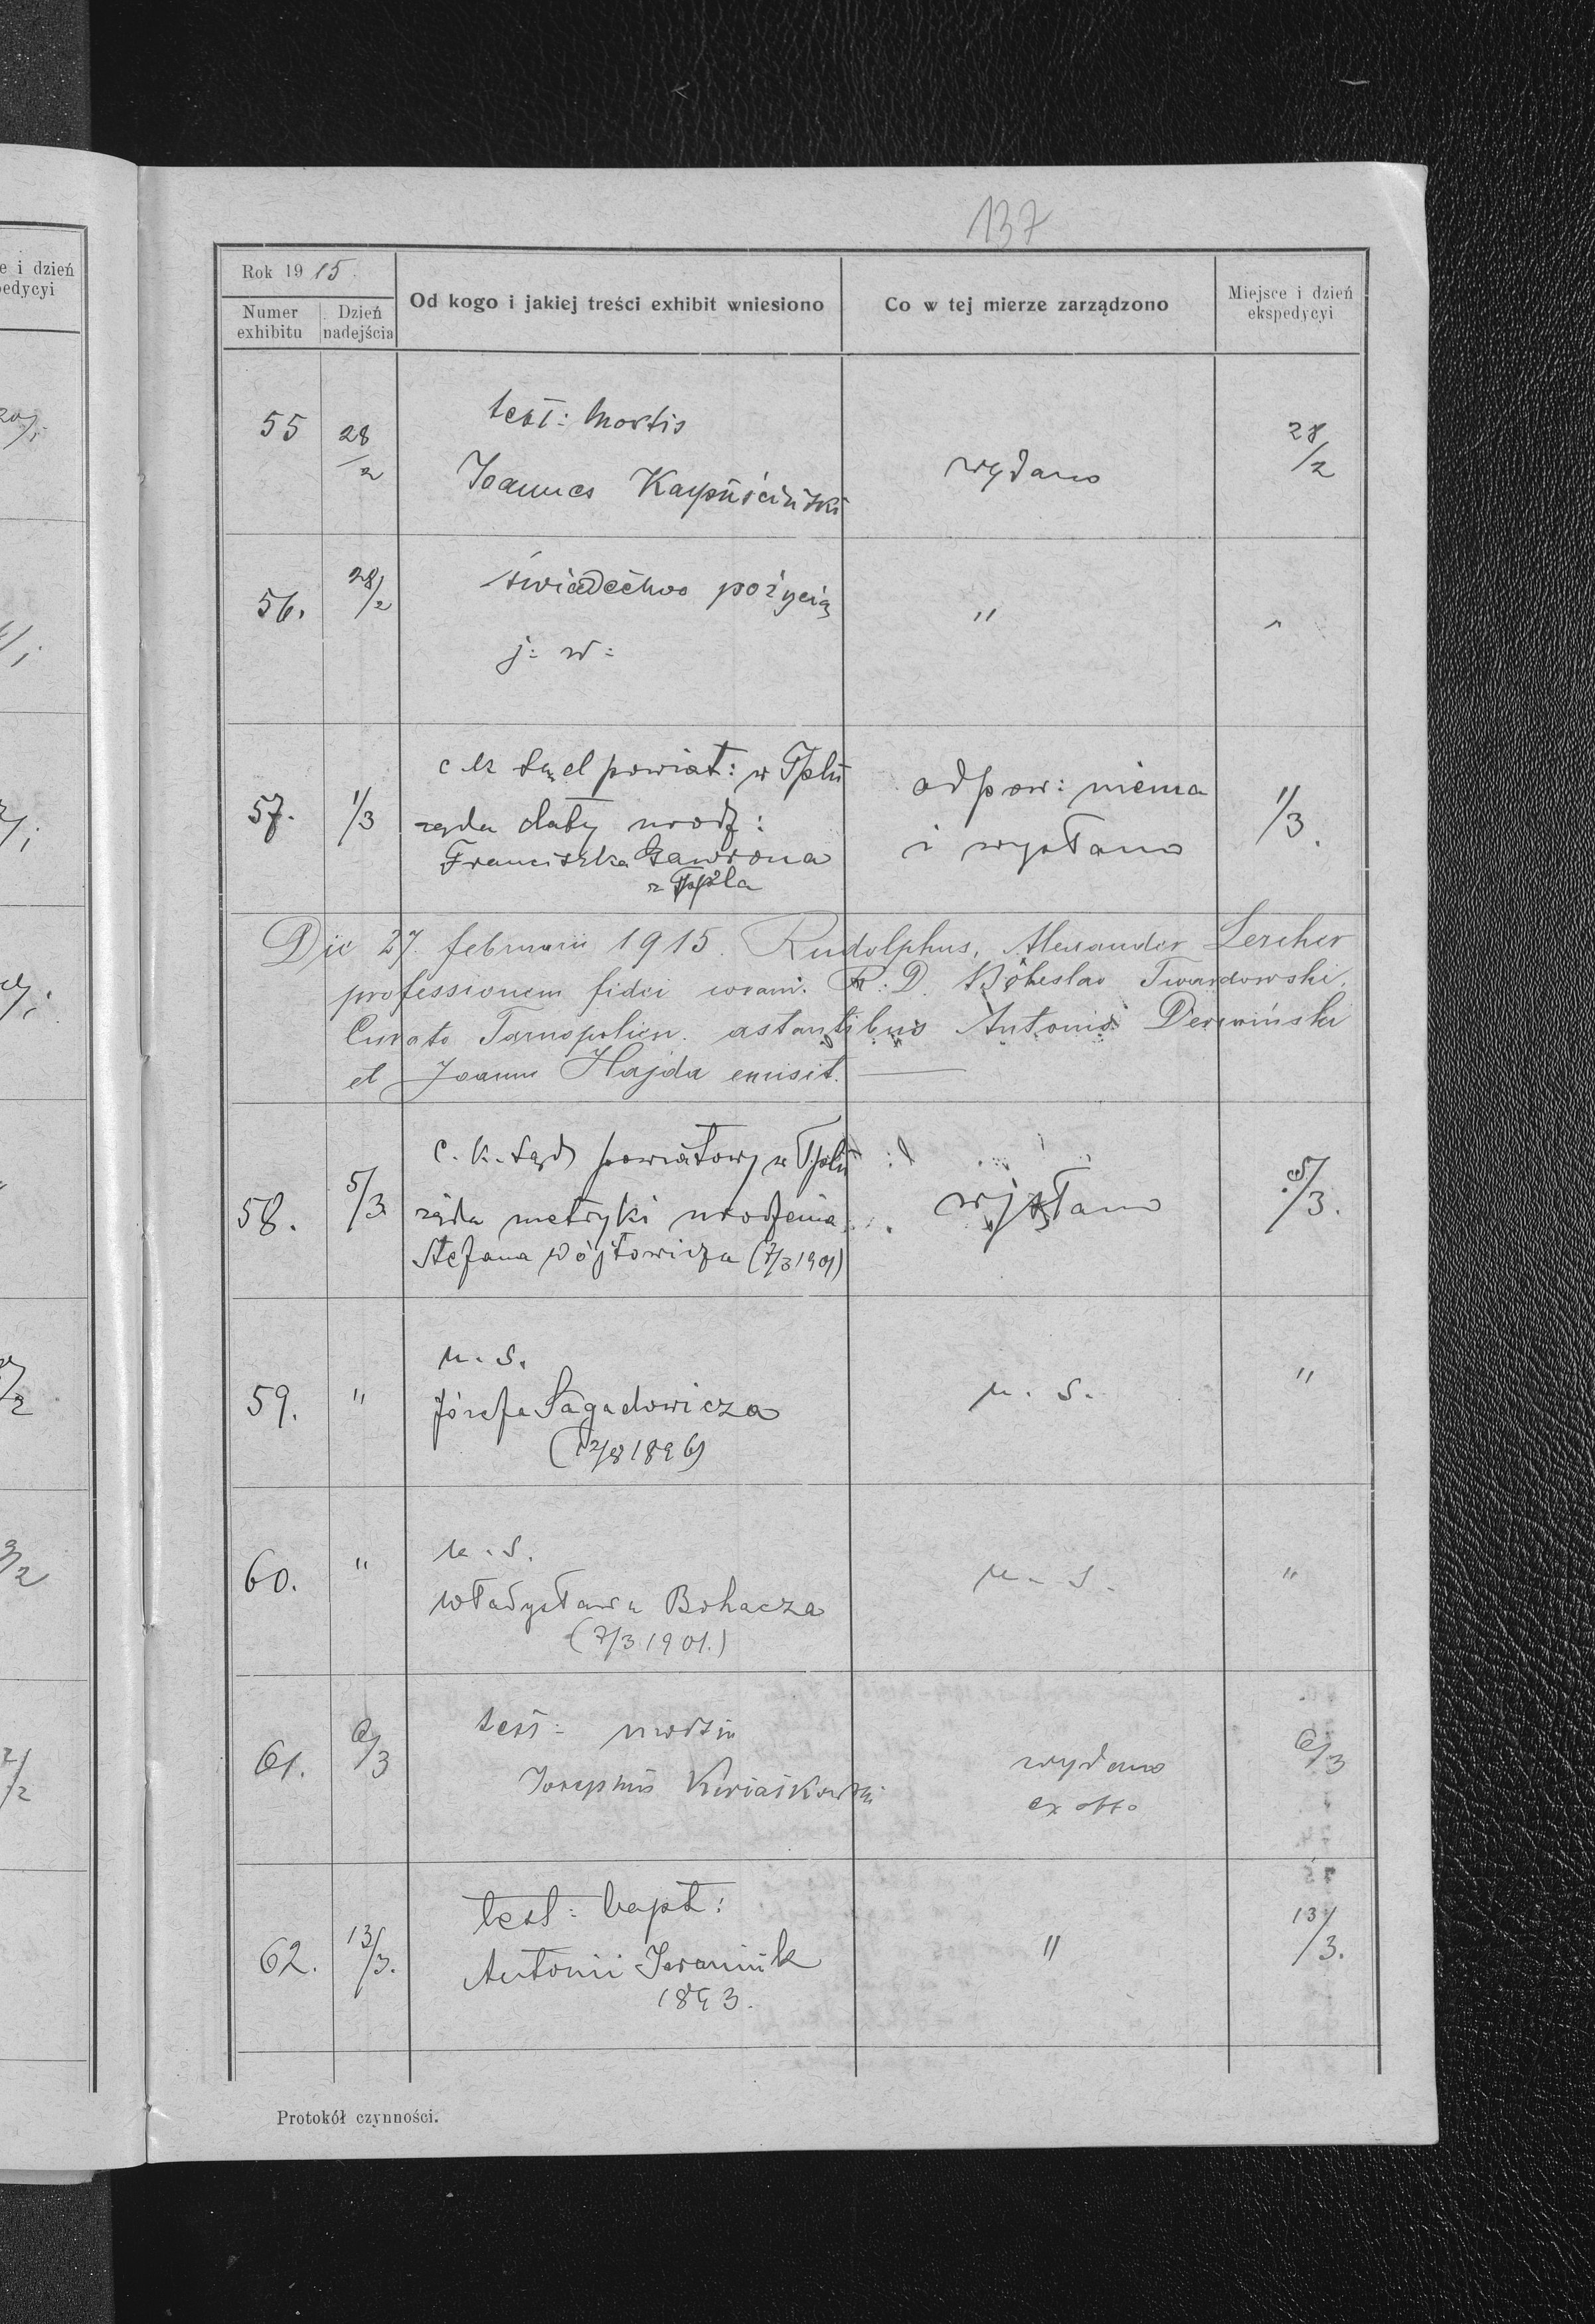 137
Rok 1915.
Numer exhibitu
Dzień nadejścia
Od kogo i jakiej treści exhibit wniesiono
Co w tej mierze zarządzono
Miejsce i dzień ekspedycyi
e i dzień
pedycyi
55 28/2 test: mortis
Joannes Kapuściński wydano 28/2
56. 28/2 świadectwo pożycia " "
j: w:
57. 1/3 c k Sąd powiat: w Tplu odpow: niema 1/3.
żąda daty urodz: i wysłano
Franciszka Gawrona
z Tpla
Die 27. februarii 1915. Rudolphus, Alexander Lercher
professionem fidei coram. R: D. Boleslao Twardowski,
Curato Tarnopolien. astantibus Antonio Derwiński
et Joanne Hajda emisit.
58. 5/3 c. k. Sąd powiatowy w Tplu
żąda metryki urodzenia wysłano 5/3.
Stefana Wójtowicza (7/3 1901)
59. " u. s.
Józefa Sagadowicza u. s. "
(12/8 1896)
60. " u. s. u. s. "
Władysława Bohacza
(7/3 1901.)
61. 6/3 test: mortis
Josephus Kwiatkowski wydano 6/3
ex offo
62. 13/3. test: bapt: " 13/3.
Antonii
1893.
Protokół czynności.